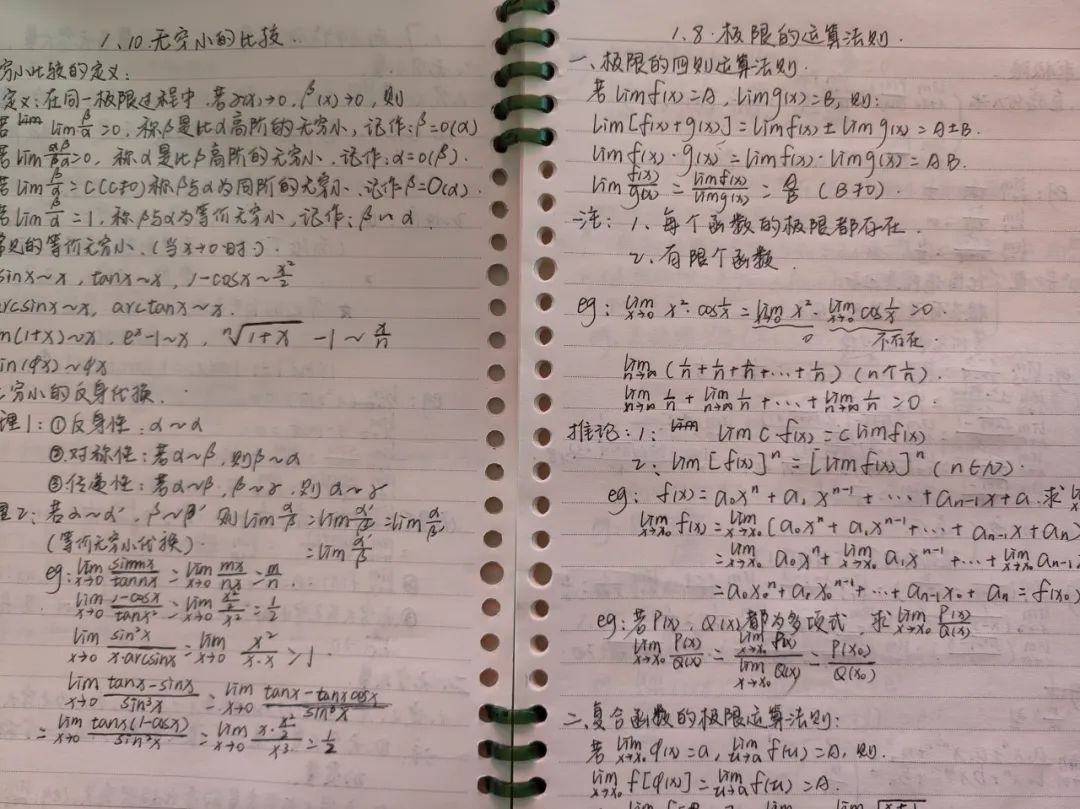 1.10.无穷小的比较.
穷小比较的定义：
定义：在同一极限过程中.若α(x)→0,β(x)→0,则
若 lim β/α=0,称β是比α高阶的无穷小,记作:β=o(α)
若lim α/β=0,称α是比β高阶的无穷小.记作:α=o(β).
若lim β/α=C(C≠0)称β与α为同阶的无穷小.记作β=O(α).
若lim β/α=1,称β与α为等价无穷小,记作:β∽α
常见的等价无穷小.(当x→0时:)
sinx~x,tanx~x,1-cosx~x²/2
arcsinx~x,arctanx~x.
n(1+x)~x,eˣ-1~x,ⁿ√(1+x) -1~x/n
in(φx)~φx
穷小的反身代换.
理1:①反身性:α~α
②对称性:若α~β,则β~α
③传递性:若α~β,β~γ,则α~γ
理2:若α~α',β~β' 则lim α/β=lim α'/β'=lim α/β'
(等价无穷小代换) =lim α'/β
eg:lim x→0 sinmx/tannx=lim x→0 mx/nx=m/n
lim x→0 (1-cosx)/tanx²=lim x→0 (x²/2)/x²=1/2
lim x→0 sin²x/(x·arcsinx)=lim x→0 x²/(x·x)=1.
lim x→0 (tanx-sinx)/sin³x=lim x→0 (tanx-tanxcosx)/sin³x
=lim x→0 tanx(1-cosx)/sin³x=lim x→0 (x·x²/2)/x³=1/2
1.8.极限的运算法则.
一.极限的四则运算法则.
若limf(x)=A,limg(x)=B,则:
lim[f(x)+g(x)]=limf(x)±limg(x)=A±B.
limf(x)·g(x)=limf(x)·limg(x)=AB.
lim f(x)/g(x)=limf(x)/limg(x)=A/B (B≠0).
注:1.每个函数的极限都存在.
2.有限个函数.
eg:lim x→0 x²·cos1/x=lim x→0 x²·lim x→0 cos1/x=0.
0 不存在.
lim n→∞(1/n+1/n+1/n+…+1/n)(n个1/n).
lim n→∞ 1/n+lim n→∞ 1/n+…+lim n→∞ 1/n=0.
推论:1: limC·f(x)=Climf(x)
2:lim[f(x)]ⁿ=[limf(x)]ⁿ(n∈N).
eg: f(x)=a₀xⁿ+a₁xⁿ⁻¹+…+aₙ₋₁x+a.求li
lim x→x₀ f(x)=lim x→x₀(a₀xⁿ+a₁xⁿ⁻¹+…+aₙ₋₁x+aₙ)
=lim x→x₀ a₀xⁿ+lim x→x₀ a₁xⁿ⁻¹+…+lim x→x₀ aₙ₋₁
=a₀x₀ⁿ+a₁x₀ⁿ⁻¹+…+aₙ₋₁x₀+aₙ=f(x₀)
eg:若P(x),Q(x)都为多项式,求lim x→x₀ P(x)/Q(x)
lim x→x₀ P(x)/Q(x)=lim x→x₀ P(x)/lim x→x₀ Q(x)=P(x₀)/Q(x₀)
二.复合函数的极限运算法则:
若lim x→x₀ φ(x)=a,lim u→a f(u)=A,则.
lim x→x₀ f[φ(x)]=lim u→a f(u)=A.